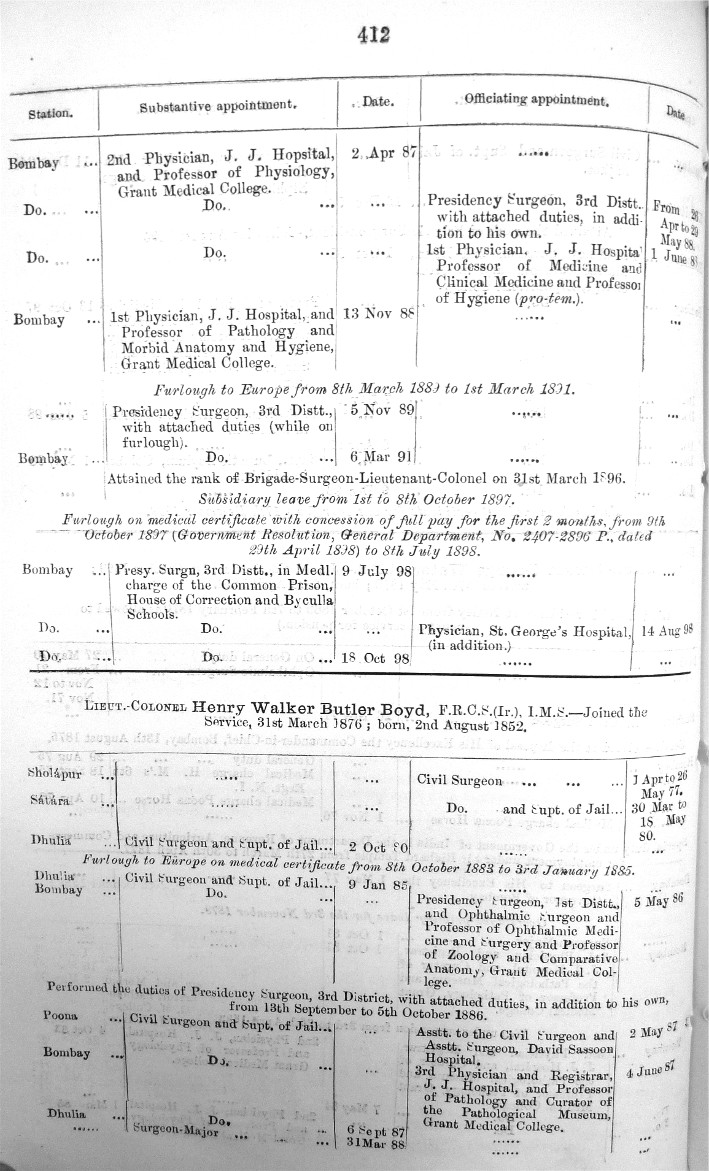 412
Station. Substantive appointment. Date. Officiating appointment. Date
Bombay ... 2nd Physician, J. J. Hopsital, 2 Apr 87 ...... ...
and Professor of Physiology,
Grant Medical College.
Do. ... Do. ... ... Presidency Surgeon, 3rd Distt., From 26
with attached duties, in addi- Apr to 29
tion to his own. May 88.
Do. ... Do. ... ... 1st Physician, J. J. Hospital 1 June 88
Professor of Medicine and
Clinical Medicine and Professor
of Hygiene (pro-tem.).
Bombay ... 1st Physician, J. J. Hospital, and 13 Nov 88 ...... ...
Professor of Pathology and
Morbid Anatomy and Hygiene,
Grant Medical College.
Furlough to Europe from 8th March 1889 to 1st March 1891.
...... Presidency Surgeon, 3rd Distt., 5 Nov 89 ...... ...
with attached duties (while on
furlough).
Bombay ... Do. ... 6 Mar 91 ...... ...
Attained the rank of Brigade-Surgeon-Lieutenant-Colonel on 31st March 1896.
Subsidiary leave from 1st to 8th October 1897.
Furlough on medical certificate with concession of full pay for the first 2 months, from 9th
October 1897 (Government Resolution, General Department, No. 2407-2896 P., dated
29th April 1898) to 8th July 1898.
Bombay ... Presy. Surgn, 3rd Distt., in Medl. 9 July 98 ...... ...
charge of the Common Prison,
House of Correction and Byculla
Schools.
Do. ... Do. ... ... Physician, St. George's Hospital, 14 Aug 98
(in addition.)
Do. ... Do. ... 18 Oct 98 ...... ...
LIEUT.-COLONEL Henry Walker Butler Boyd, F.R.C.S.(Ir.), I.M.S.—Joined the
Service, 31st March 1876 ; born, 2nd August 1852.
Sholápur ... ...... ... Civil Surgeon ... ... ... 1 Apr to 26
May 77.
Sátára ... ...... ... Do. and Supt. of Jail... 30 Mar to
18 May
80.
Dhulia ... Civil Surgeon and Supt. of Jail... 2 Oct 80 ...... ...
Furlough to Europe on medical certificate from 8th October 1883 to 3rd January 1885.
Dhulia ... Civil Surgeon and Supt. of Jail... 9 Jan 85 ...... ...
Bombay ... Do. ... ... Presidency Surgeon, 1st Distt., 5 May 86
and Ophthalmic Surgeon and
Professor of Ophthalmic Medi-
cine and Surgery and Professor
of Zoology and Comparative
Anatomy, Grant Medical Col-
lege.
Performed the duties of Presidency Surgeon, 3rd District, with attached duties, in addition to his own,
from 13th September to 5th October 1886.
Poona ... Civil Surgeon and Supt. of Jail... ... Asstt. to the Civil Surgeon and 2 May 87
Asstt. Surgeon, David Sassoon
Hospital.
Bombay ... Do. ... ... 3rd Physician and Registrar, 4 June 87
J. J. Hospital, and Professor
of Pathology and Curator of
the Pathological Museum,
Grant Medical College.
Dhulia ... Do. ... 6 Sept 87 ...... ...
...... Surgeon-Major ... ... 31 Mar 88 ...... ...